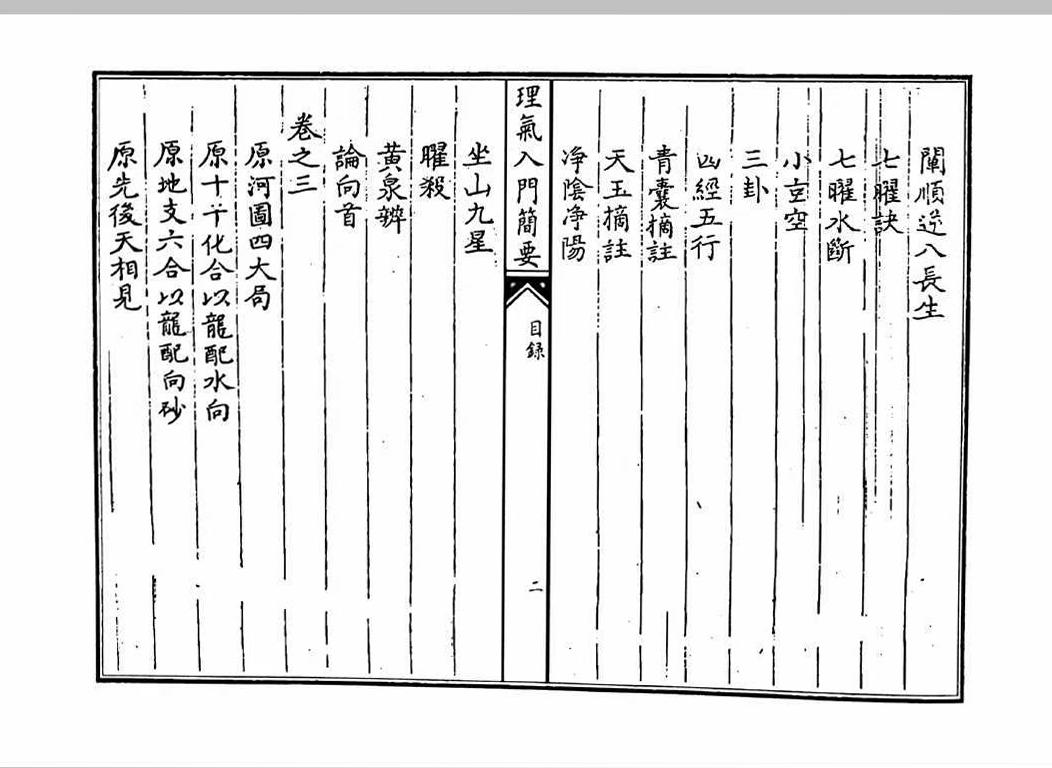 闡順逆八長生
七曜訣
七曜水斷
小玄空
三卦
凶經五行
青囊摘註
天玉摘註
净陰净陽
理氣入門簡要
目錄
二
坐山九星
曜殺
黃泉辨
論向首
卷之三
原河圖四大局
原十干化合以龍配水向
原地支六合以龍配向砂
原先後天相見